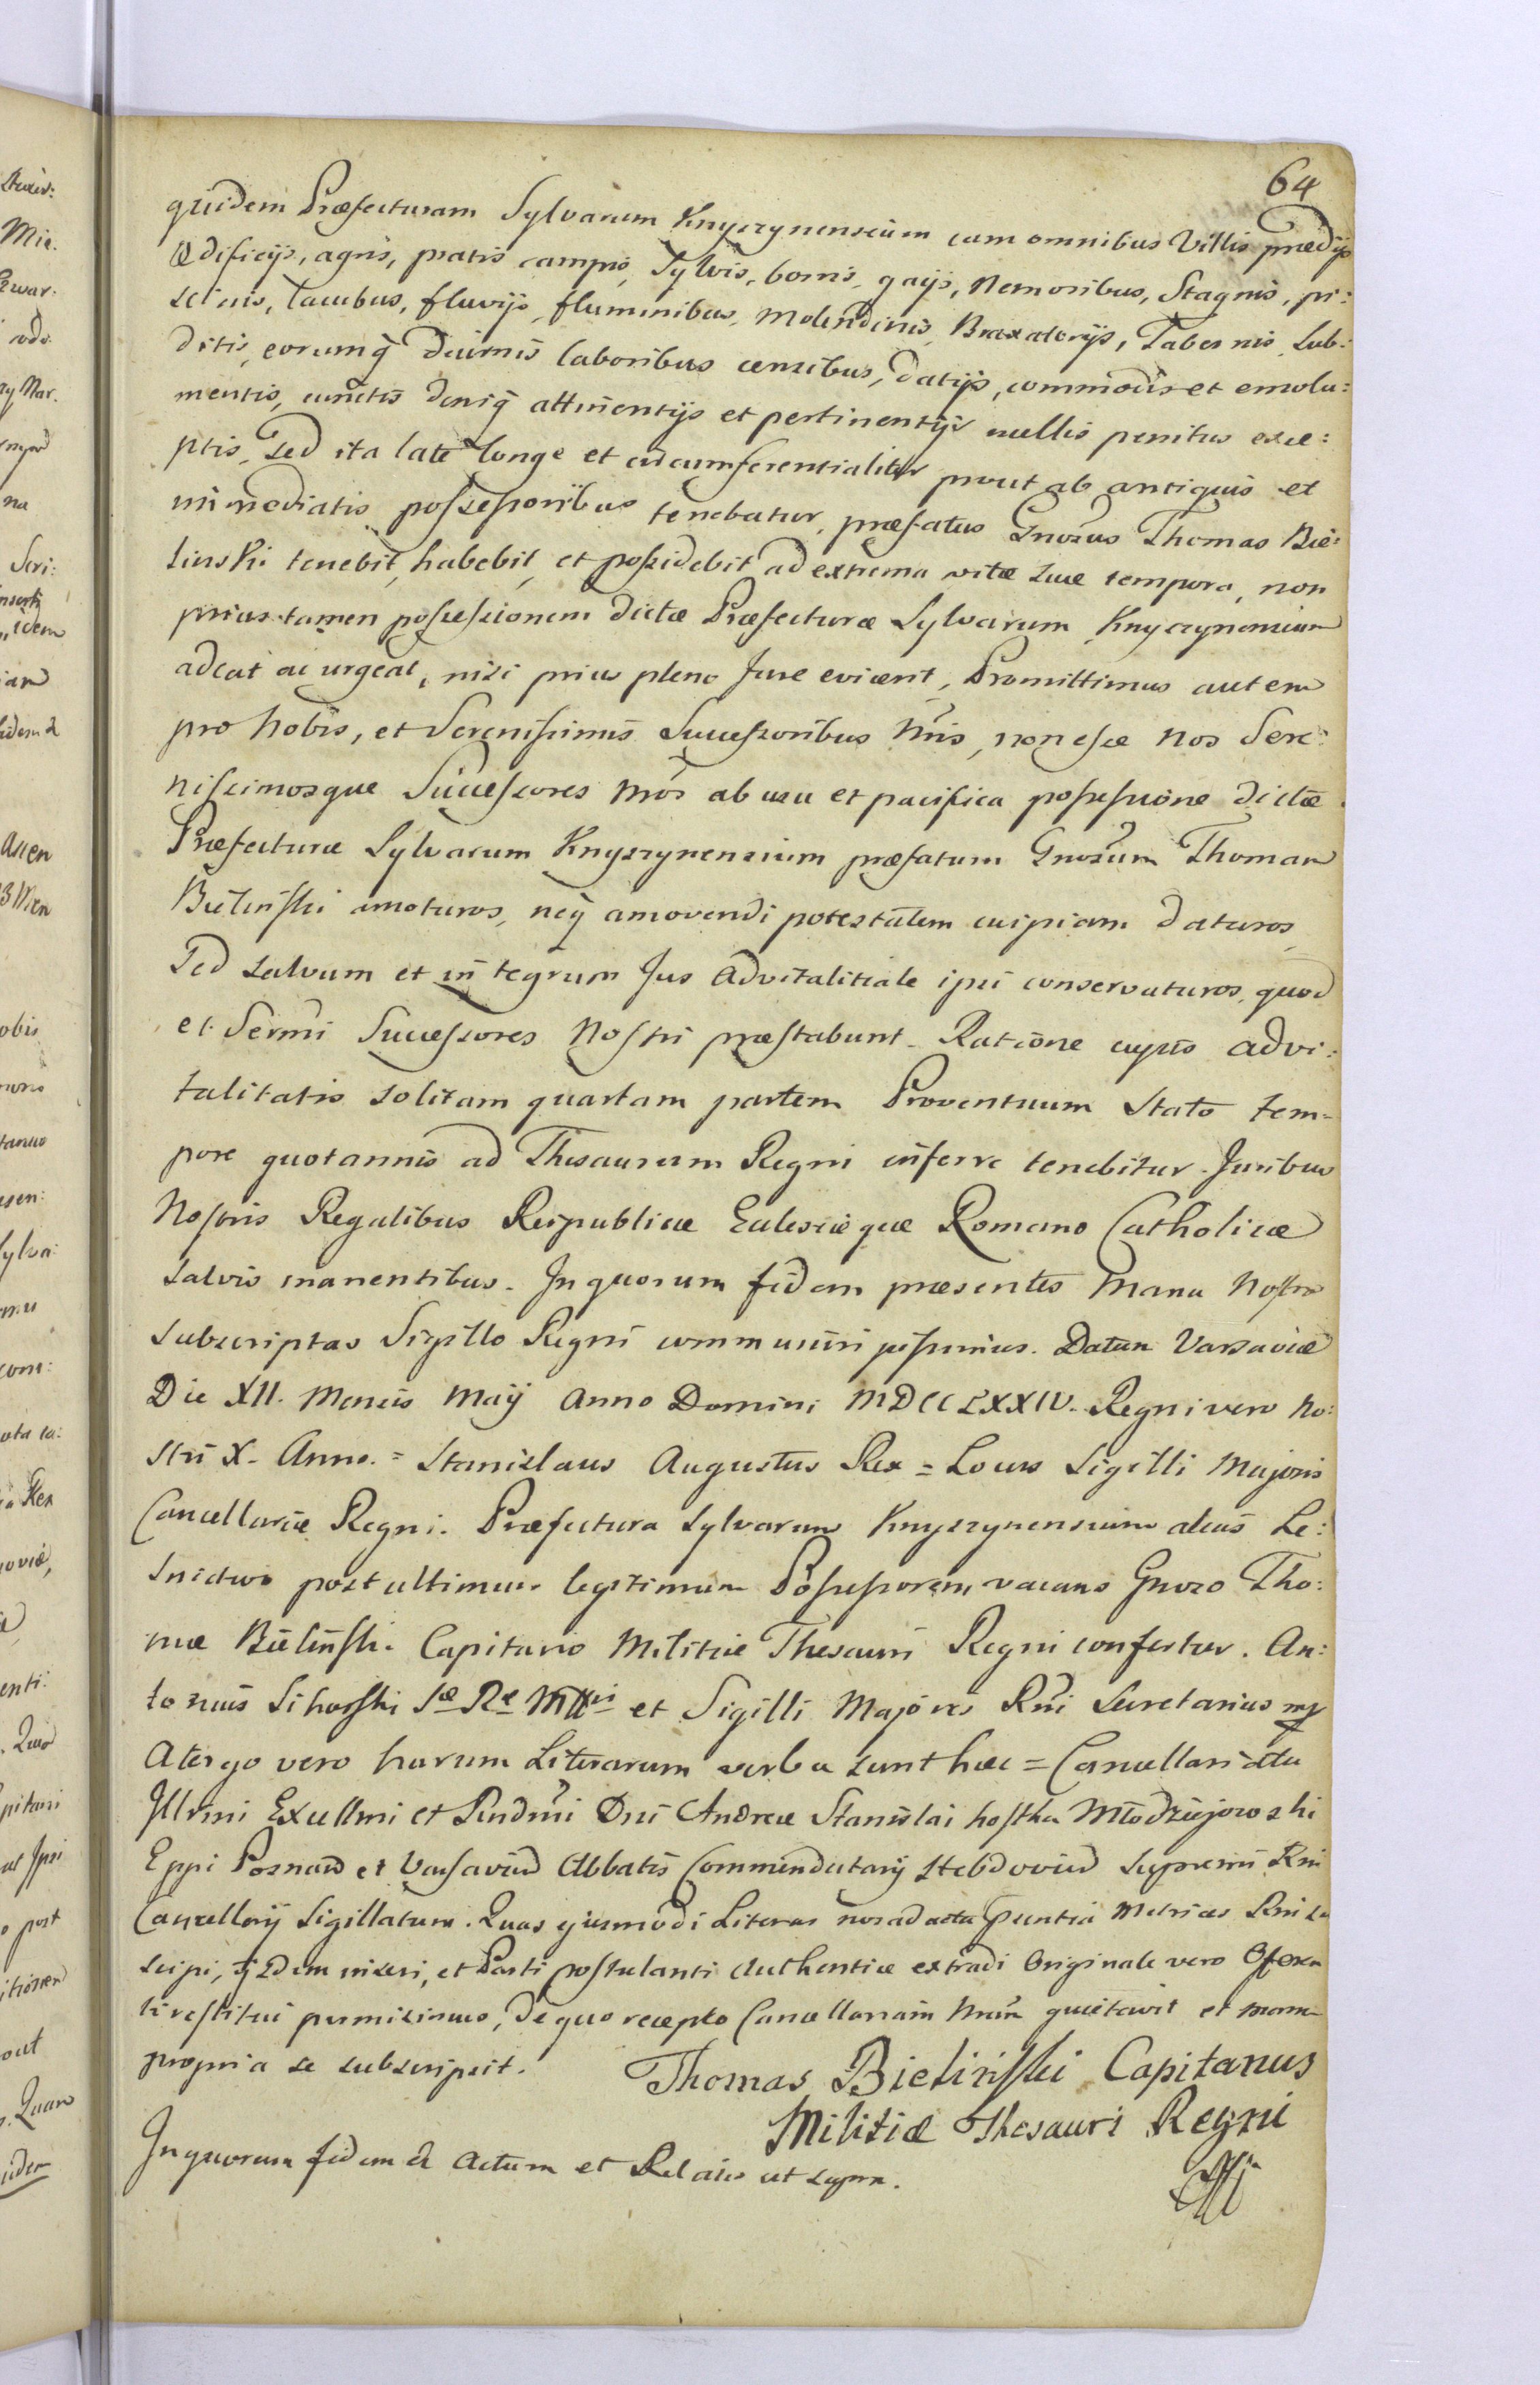 64
quidem Præfecturam Sylvarum Knyszynensium cum omnibus Villis prædijs
ædificijs, agris, pratis campis, Sylvis, borris, gajis, Nemoribus, Stagnis, pi:
scinis, lacubus, fluvijs, fluminibus, Molendinis, Braxatorijs, Tabernis, sub:
ditis, eorumq̃ diurnis laboribus censibus, datijs, commodis et emolu:
mentis, cunctis deniq̃ attinentijs et pertinentijs nullis penitus exce:
ptis, sed ita late longe et circumferentialiter prout ab antiquis et
immediatis possessoribus tenebatur, præfatus Gnosus Thomas Bie:
linski tenebit, habebit, et possidebit ad extrema vitæ suæ tempora, non
prius tamen possessionem dictæ Præfecturæ Sylvarum Knyszynensium
adeat ac urgeat, nisi prius pleno Jure evicerit, Promittimus autem
pro Nobis, et Serenissimis Successoribus Nris, non esse Nos Sere:
nissimosque Successores Nros ab usu et pacifica possessione dictæ
Præfecturæ Sylvarum Knyszynensium præfatum Gnosum Thomam
Bielinski amoturos, neq̃ amovendi potestatem cuipiam daturos,
Sed salvum et integrum Jus Advitalitiale ipsi conservaturos, quod
et Sermi Successores Nostri præstabunt. Ratione cujus advi:
talitatis solitam quartam partem Proventuum stato tem-
pore quotannis ad Thesaurum Regni inferre tenebitur. Juribus
Nostris Regalibus Reipublicæ Eclesiæque Romano Catholicæ
salvis manentibus. In quorum fidem præsentes Manu Nostra
subscriptas Sigillo Regni communiri jussimus. Datum Varsaviæ
Die XII. Mensis Maij Anno Domini MDCCLXXIV. Regni vero No:
stri X. Anno. = Stanislaus Augustus Rex = Locus Sigilli Majoris
Cancellariæ Regni. Præfectura Sylvarum Knyszynensium alias Le:
snictwo post ultimum legitimum Possessorem vacans Gnoso Tho:
mæ Bielinski Capitaneo Militiæ Thesauri Regni confertur. An:
tonius Sikorski Sæ Ræ Mttis et Sigilli Majoris Rni Secretarius mp
Atergo vero harum Literarum verba sunt hæc = Cancellariatu
Illrmi Excellmi et Rndmi Dni Andreæ Stanislai Kostka Młodziejowski
Eppi Posnań et Varsavień Abbatis Commendatarij Hebdovień Supremi Rni
Cancellarij Sigillatum. Quas ejusmodi Literas nos ad acta pñtia Metrices Rni su
scipi, ijsdem inseri, et Parti postulanti authentice extradi Originale vero Offeren
ti restitui permisimus, de quo recepto Cancellariam Nram quietavit et manu
propria se subscripsit.
Thomas Bielinski Capitanus
Militiæ Thesauri Regni
In quorum fidem & Actum et Relatio ut supra.